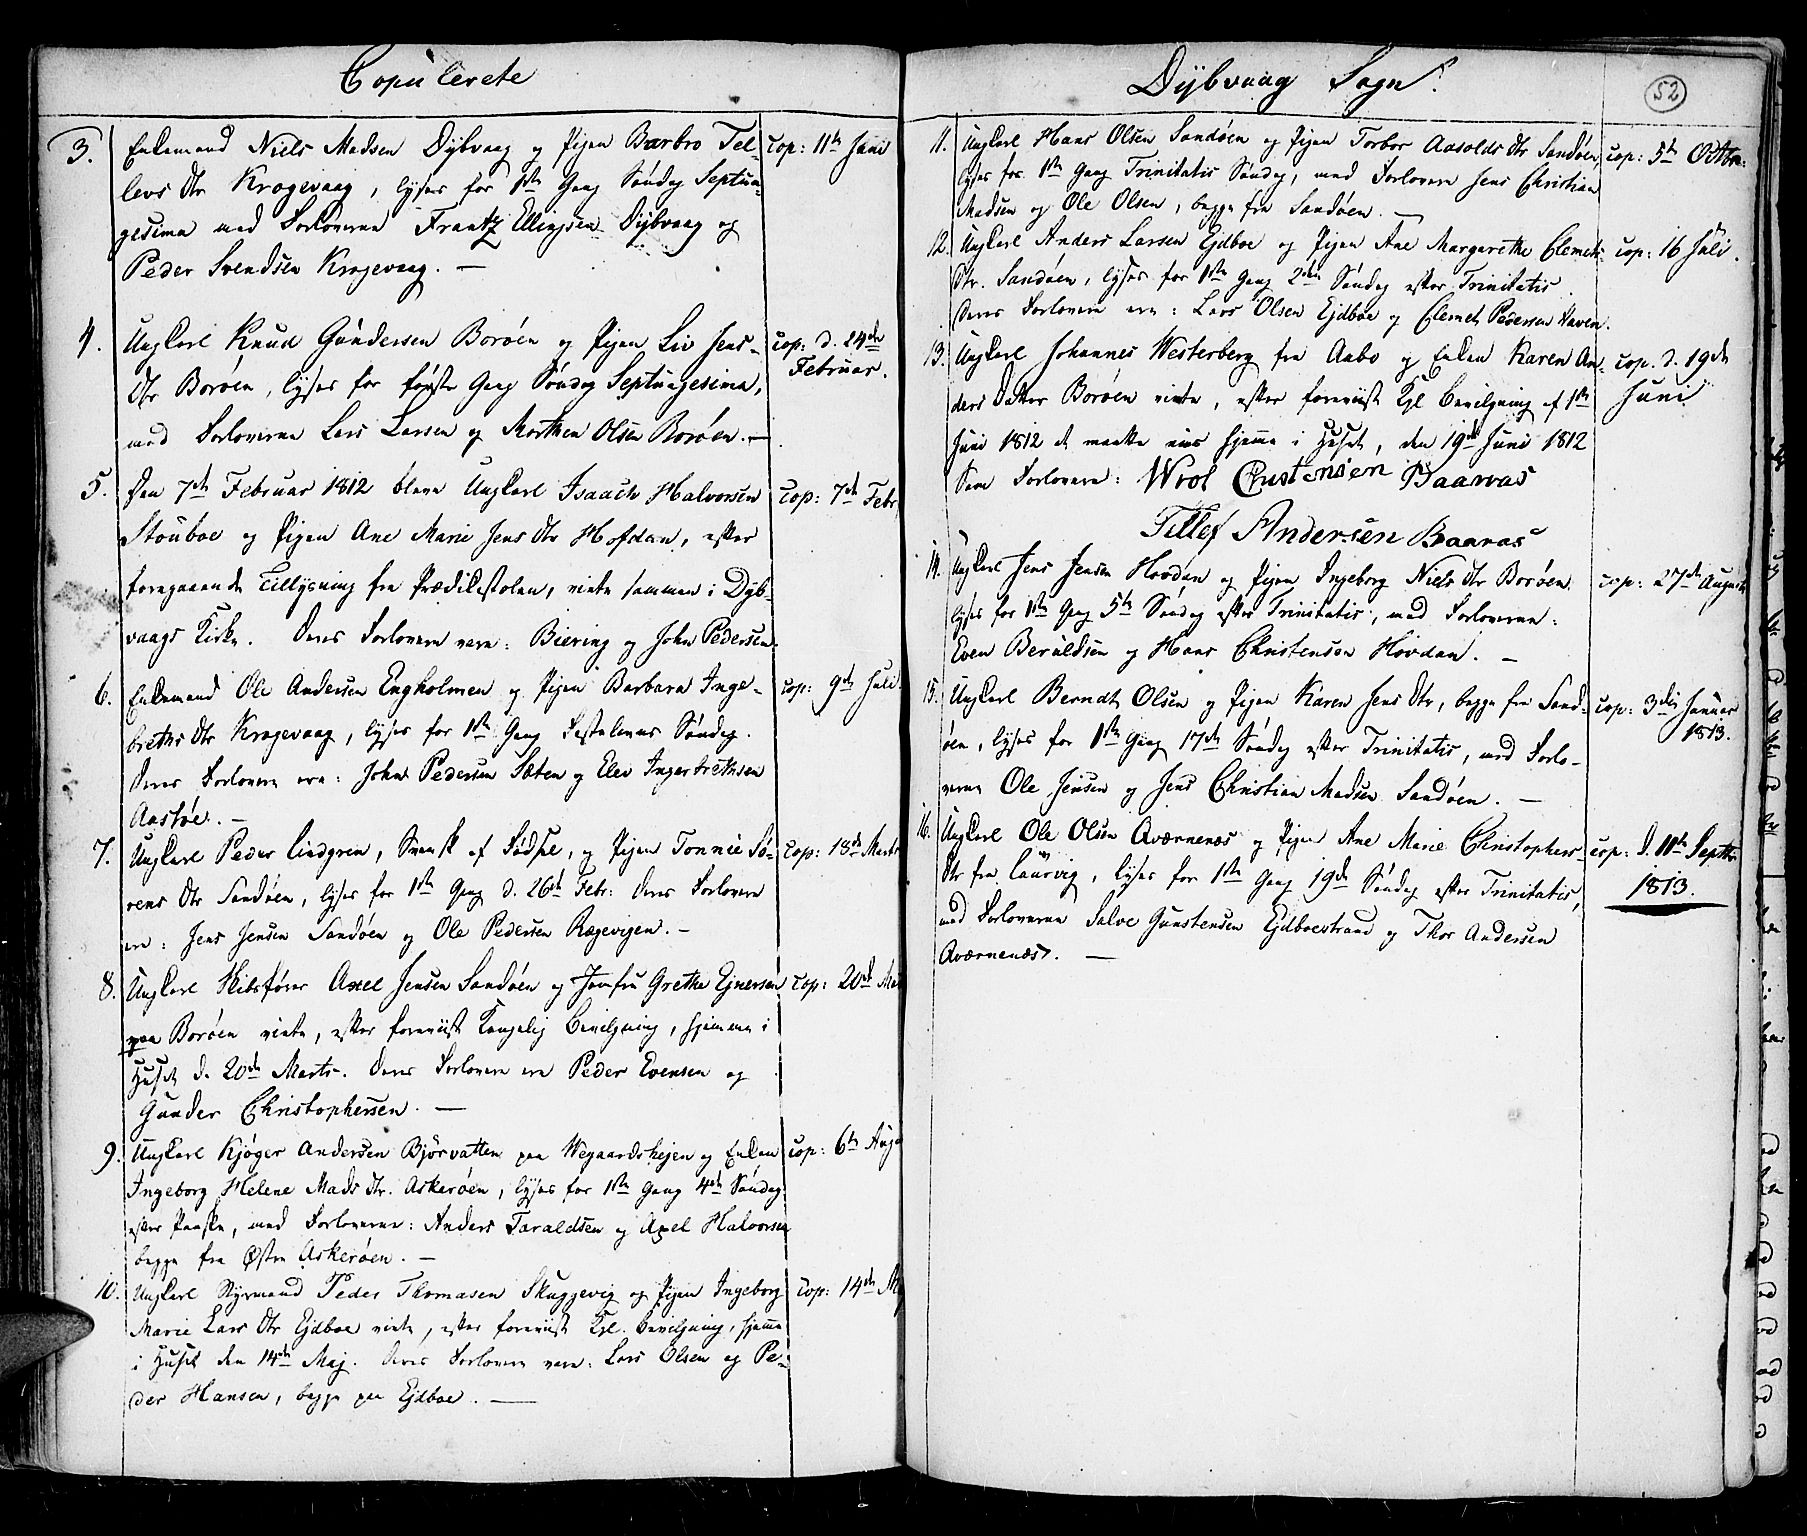 Copulerete
3. Enkemand Niels Madsen Dybvaag og Pigen Barbro Tel-
levs Dtr Krogevaag, lyses for 1ste Gang Søndag Septua-
gesima med Forloverne Frantz Ellingsen Dybvaag og
Peder Svendsen Krogevaag. —
cop: 11te Juni
4. Ungkarl Knud Gundersen Borøen og Pigen Liv Jens-
Dtr Borøen, lyses for første Gang Søndag Septuagesima,
med Forloverne Lars Larsen og Morthen Olsen Borøen. —
cop: d. 24de
Februar.
5. Den 7de Februar 1812 bleve Ungkarl Isaach Halvorsen
Stouboe og Pigen Ane Marie Jens Dtr Hofdan, efter
foregaaende Tillysning fra Prædikestolen, viede sammen i Dyb-
vaags Kirke. Deres Forlovere vare: Biering og John Pedersen
cop: 7de Febr
6. Enkemand Ole Andersen Engholmen og Pigen Barbara Inge-
breths Dtr Krogevaag, lyses for 1ste Gang Fastelavns Søndag.
Deres Forlovere ere: John Pedersen Sæten og Elev Ingerbrethsen
Aastøe. —
cop: 9de Juli
7. Ungkarl Peder Lindgren, Svensk af Fødsel, og Pigen Tonnie Sø-
rens Dtr Sandøen, lyses for 1ste Gang d. 26de Febr: Deres Forlovere
ere: Jens Jensen Sandøen og Ole Pedersen Rægevigen. —
cop: 18de Marts
8. Ungkarl Skibsfører Axel Jensen Sandøen og Jomfru Grethe Ejnersen
paa Borøen viede, efter foreviist Kongelig Bevilgning, hjemme i
Huset d. 20de Marts. Deres Forlovere ere Peder Evensen og
Gunder Christophersen. —
cop: 20de Mar
9. Ungkarl Kjøger Andersen Björvatten paa Wegaardshejen og Enken
Ingeborg Helene Mads Dtr. Askerøen, lyses for 1ste Gang 4de Søndag
efter Paaske, med Forloverne: Anders Taraldsen og Axel Halvorsen
begge fra Østre Askerøen. —
cop: 6te Aug
10. Ungkarl Styrmand Peder Thomasen Skuggevig og Pigen Ingeborg
Marie Lars Dtr Ejdboe viede, efter foreviist Kgl. Bevilgning, hjemme
i Huset den 14de Maj. Deres Forlovere vare: Lars Olsen og Pe-
der Hansen, begge paa Ejdboe. —
cop: 14de Maj
Dybvaag Sogn.
52
11. Ungkarl Hans Olsen Sandøen og Pigen Torbor Aasolds Dtr Sandøen
lyses for 1ste Gang Trinitatis Søndag, med Forlovere Jens Christian
Madsen og Ole Olsen, begge fra Sandøen. —
cop: 5te Octbr:
12. Ungkarl Anders Larsen Ejdboe og Pigen Ane Margrethe Clemets
Dtr. Sandøen, lyses for 1ste Gang 2den Søndag efter Trinitatis.
Deres Forlovere ere: Lars Olsen Ejdboe og Clemet Pedersen Haven.
cop: 16 Juli.
13. Ungkarl Johannes Westerberg fra Aabo og Enken Karen An-
ders Datter Borøen viede, efter foreviist Kgl Bevilgning af 1ste
Juni 1812 at maatte vies hjemme i Huset, den 19de Juni 1812
Som Forlovere: Wrol Custensen Baarvas
Tellef Andersen Baarvas
cop. d. 19de
Juni
14. Ungkarl Jens Jensen Hovdan og Pigen Ingeborg Niels Dtr Borøen.
lyses for 1ste Gang 5te Søndag efter Trinitatis, med Forloverne:
Even Beruldsen og Hans Christensen Hovdan. —
cop: 27de August
15. Ungkarl Berndt Olsen og Pigen Karen Jens Dtr, begge fra Sand-
øen, lyses for 1ste Gang 17de Søndag efter Trinitatis, med Forlo-
verne Ole Jensen og Jens Christian Madsen Sandøen. —
cop: 3die Januar
1813.
16. Ungkarl Ole Olsen Qværnenæs og Pigen Ane Marie Christophers-
Dtr fra Laurvig, lyses for 1ste Gang 19de Søndag efter Trinitatis,
med Forloverne Salve Gunstensen Ejdboestrand og Thor Andersen
Qværnenæs. —
cop: d. 11te Septbr
1813.